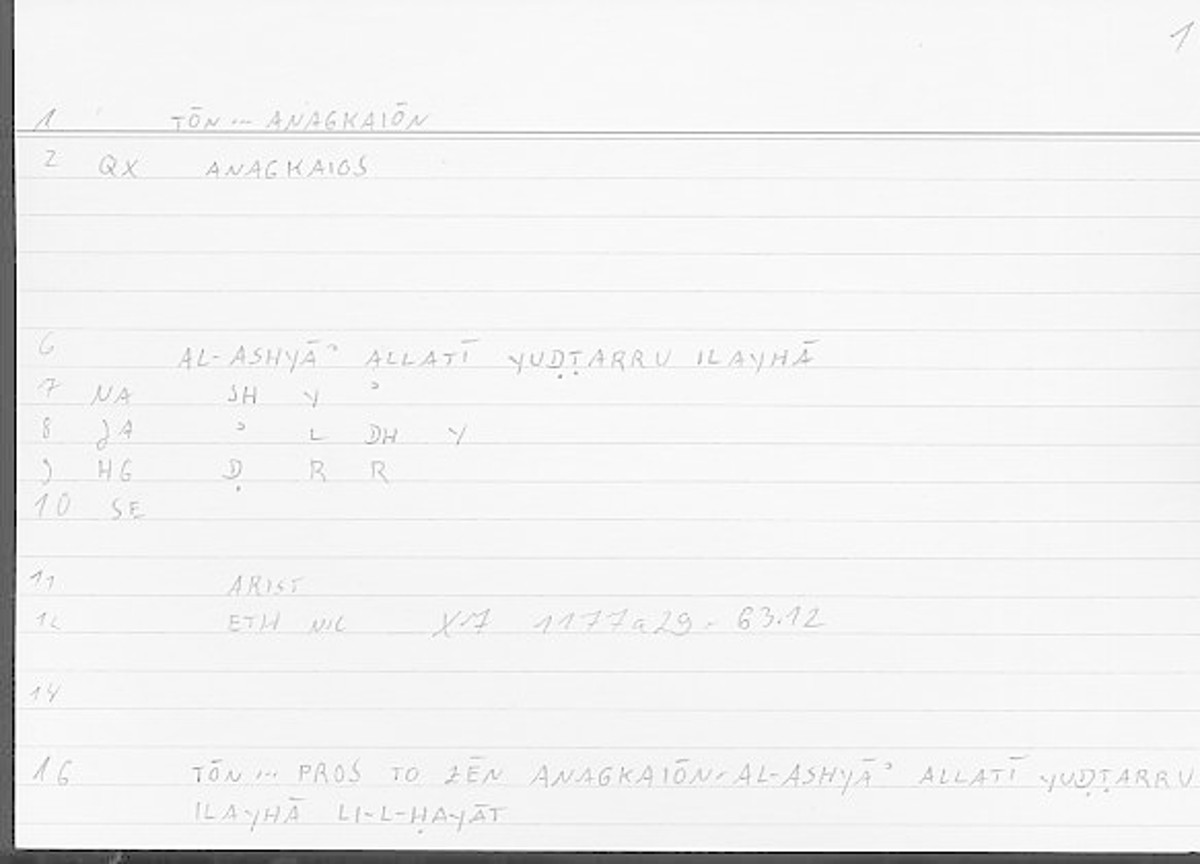 1
1 TŌN ... ANAGKAIŌN
2 QX ANAGKAIOS
6 AL-ASHYĀʾ ALLATĪ YUḌṬARRU ILAYHĀ
7 NA SH Y ʾ
8 JA ʾ L DH Y
9 HG Ḍ R R
10 SE
11 ARIST
12 ETH NIC X7 1177a29 - 63.12
14
16 TŌN ... PROS TO ZĒN ANAGKAIŌN - AL-ASHYĀʾ ALLATĪ YUḌṬARRU
ILAYHĀ LI-L-ḤAYĀT